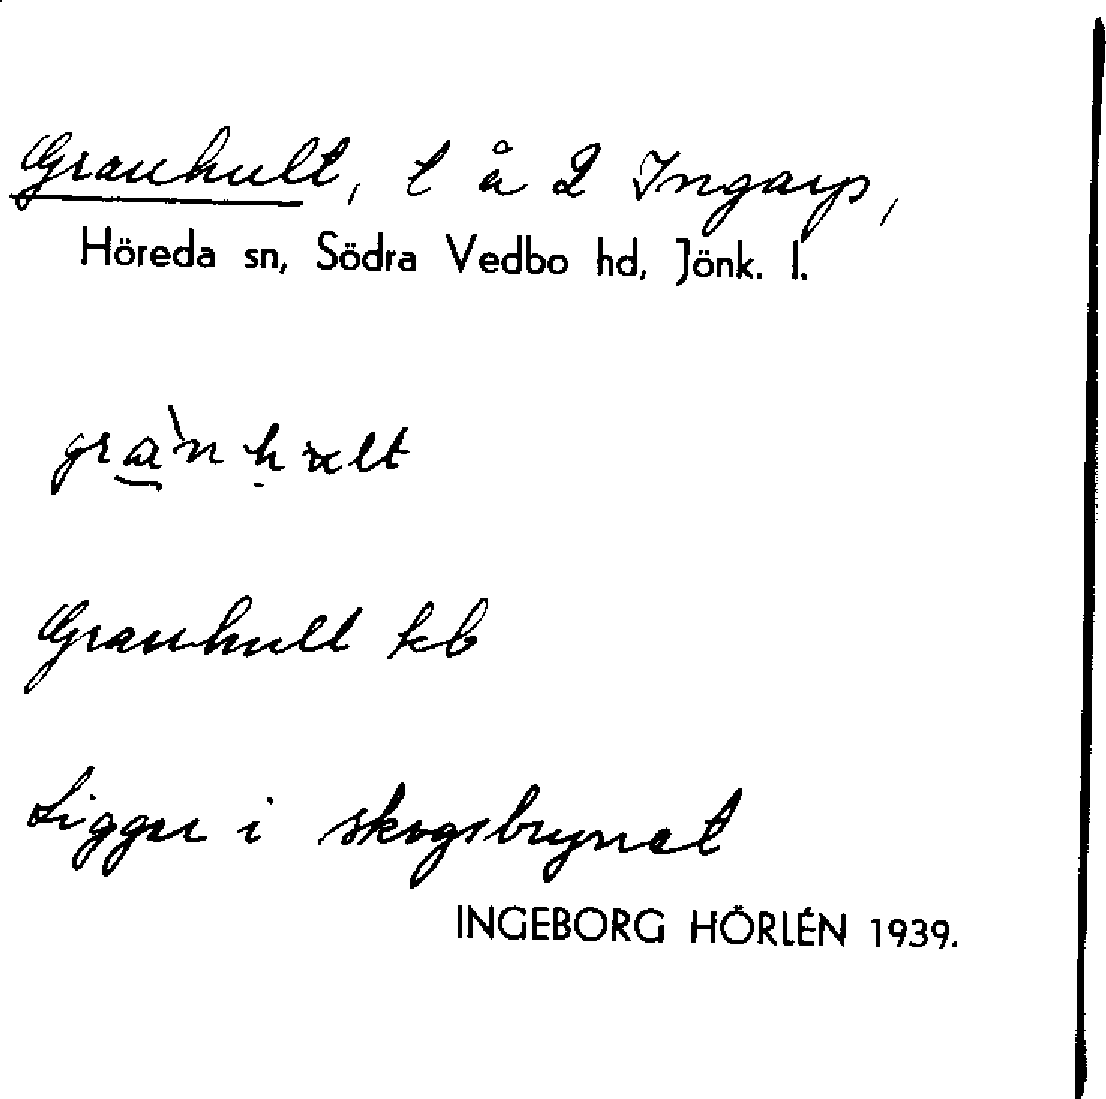 Granhult, t å 2 Ingarp,
Höreda sn, Södra Vedbo hd, Jönk. l.
Granhult kb
Ligger i skogsbrynet
INGEBORG HÖRLÉN 1939.